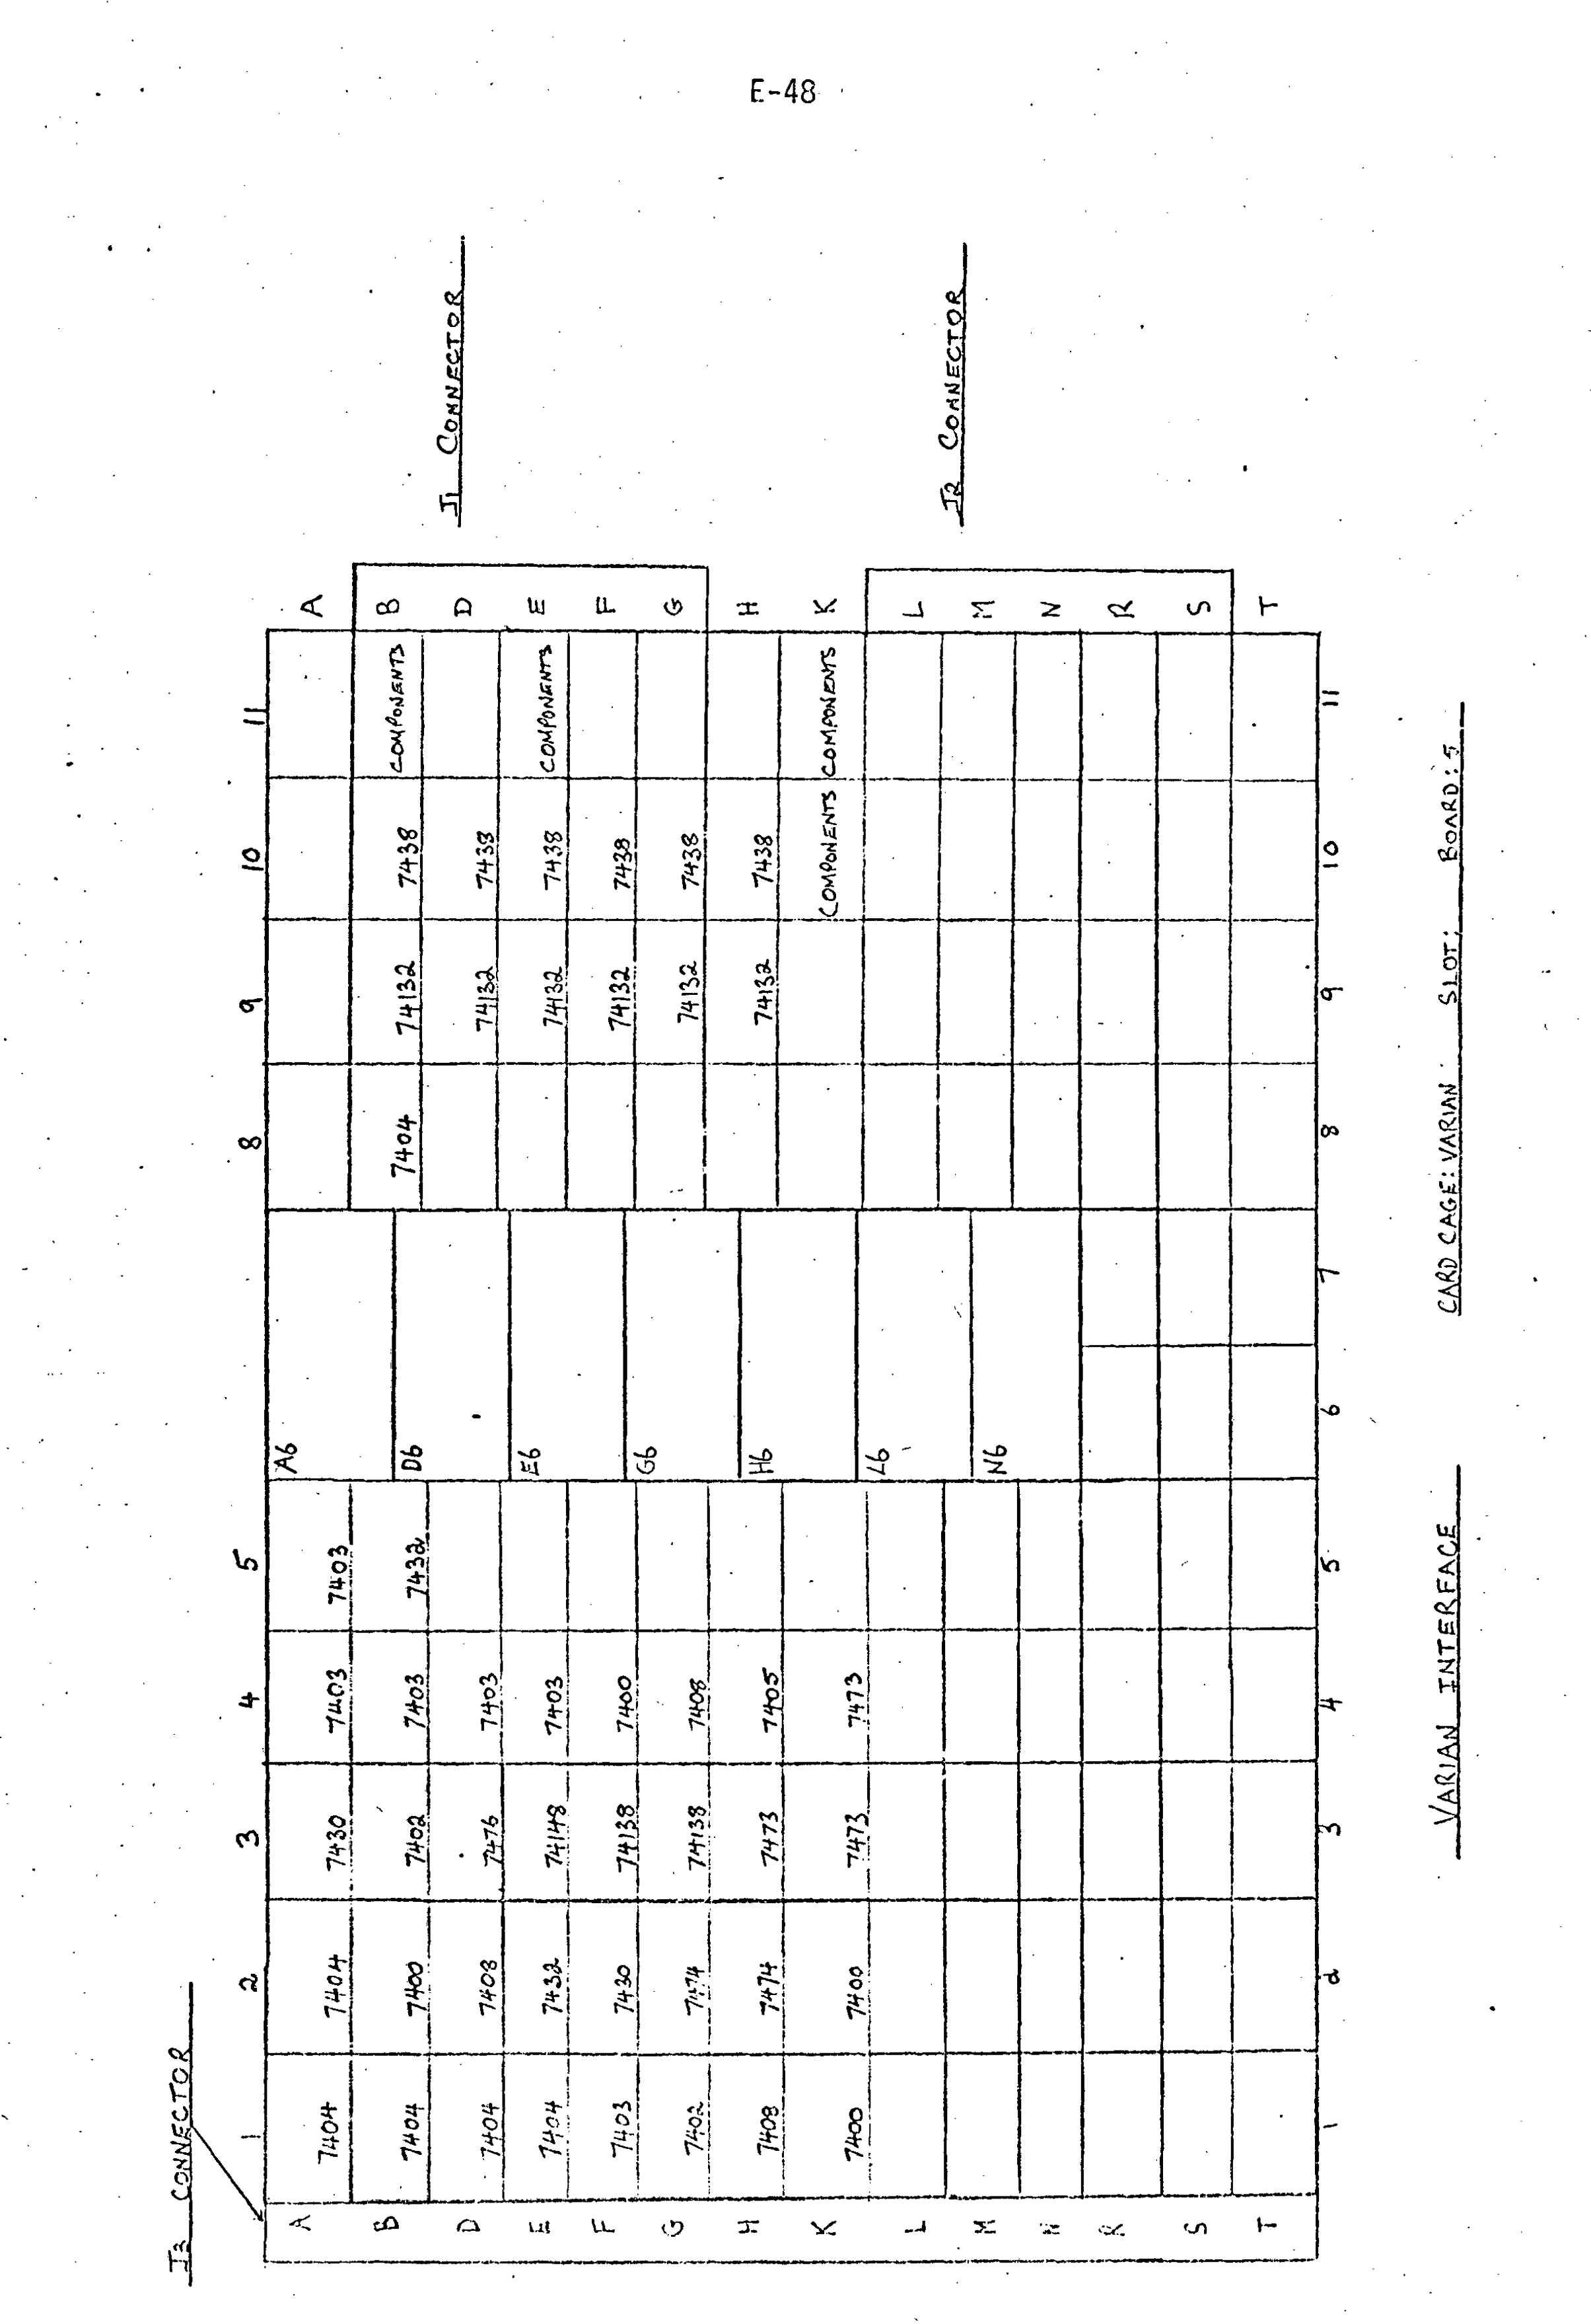 E-48
J3 CONNECTOR
J1 CONNECTOR
J2 CONNECTOR
1 2 3 4 5 8 9 10 11
A 7404 7404 7430 7403 7403 A6 A
B 7404 7400 7402 7403 7432 7404 74132 7438 COMPONENTS B
D6
D 7404 7408 7476 7403 74132 7438 D
E 7404 7432 74148 7403 E6 74132 7438 COMPONENTS E
F 7403 7430 74138 7400 74132 7438 F
G 7402 7474 74138 7408 G6 74132 7438 G
H 7408 7474 7473 7405 H6 74132 7438 H
K 7400 7400 7473 7473 COMPONENTS COMPONENTS K
L L6 L
M M
N N6 N
R R
S S
T T
1 2 3 4 5 6 7 8 9 10 11
VARIAN INTERFACE
CARD CAGE: VARIAN SLOT: BOARD: 5